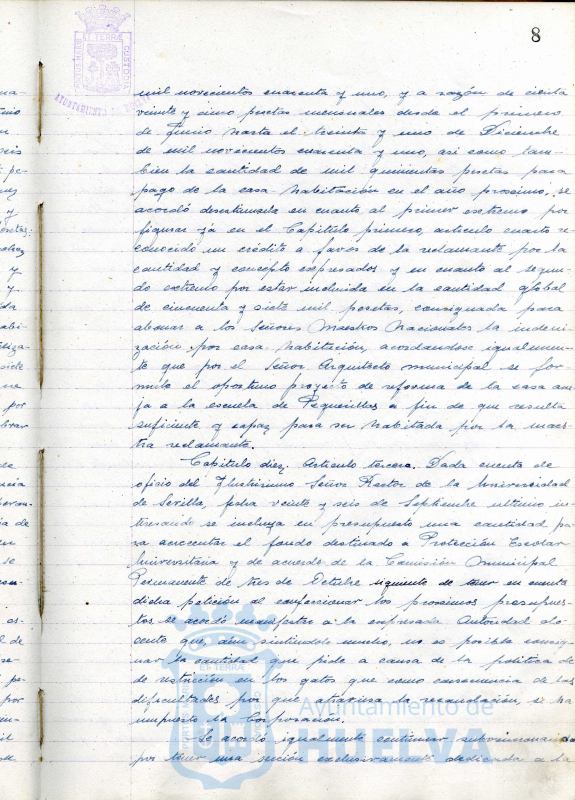 8
PORTUS MARIS ET TERRAE CUSTODIA
AYUNTAMIENTO DE HUELVA
mil novecientos cuarenta y uno, y a razón de ciento
veinte y cinco pesetas mensuales desde el primero
de Junio hasta el treinta y uno de Diciembre
de mil novecientos cuarenta y uno, asi como tam-
bien la cantidad de mil quinientas pesetas para
pago de la casa-habitación en el año proximo, se
acordó desestimarla en cuanto al primer extremo por
figurar ya en el Capitulo primero, articulo cuarto re-
conocido un crédito a favor de la reclamante por la
cantidad y concepto expresados y en cuanto al segun-
do extremo por estar incluida en la cantidad global
de cincuenta y siete mil pesetas, consignada para
abonar a los Señores Maestros Nacionales la indemi-
zación por casa-habitación, acordandose igualmen-
te que por el Señor Arquitecto municipal se for-
mule el oportuno proyecto de reforma de la casa ane-
ja a la escuela de Pequerillas a fin de que resulte
suficiente y capaz para ser habitada por la maes-
tra reclamante.
Capitulo diez: Articulo tercero. Dada cuenta de
oficio del Ilustrisimo Señor Rector de la Universidad
de Sevilla, fecha veinte y seis de Septiembre ultimo in-
teresando se incluya en presupuesto una cantidad pa-
ra acrecentar el fondo destinado a Protección Escolar
Universitaria y de acuerdo de la Comisión Municipal
Permanente de tres de Octubre siguiente de tener en cuenta
dicha petición al confeccionar los proximos presupues-
tos se acordó manifestar a la expresada Autoridad do-
cente que, aún sintiéndolo mucho, no es posible consig-
nar la cantidad que pide a causa de la politica de
de restricción en los gastos que como consecuencia de las
dificultades por que atraviesa la recaudación, se ha
impuesto la Corporación.
Se acordó igualmente continuar subvencionando
por tener una sección exclusivamente dedicada a la
Ayuntamiento de
HUELVA